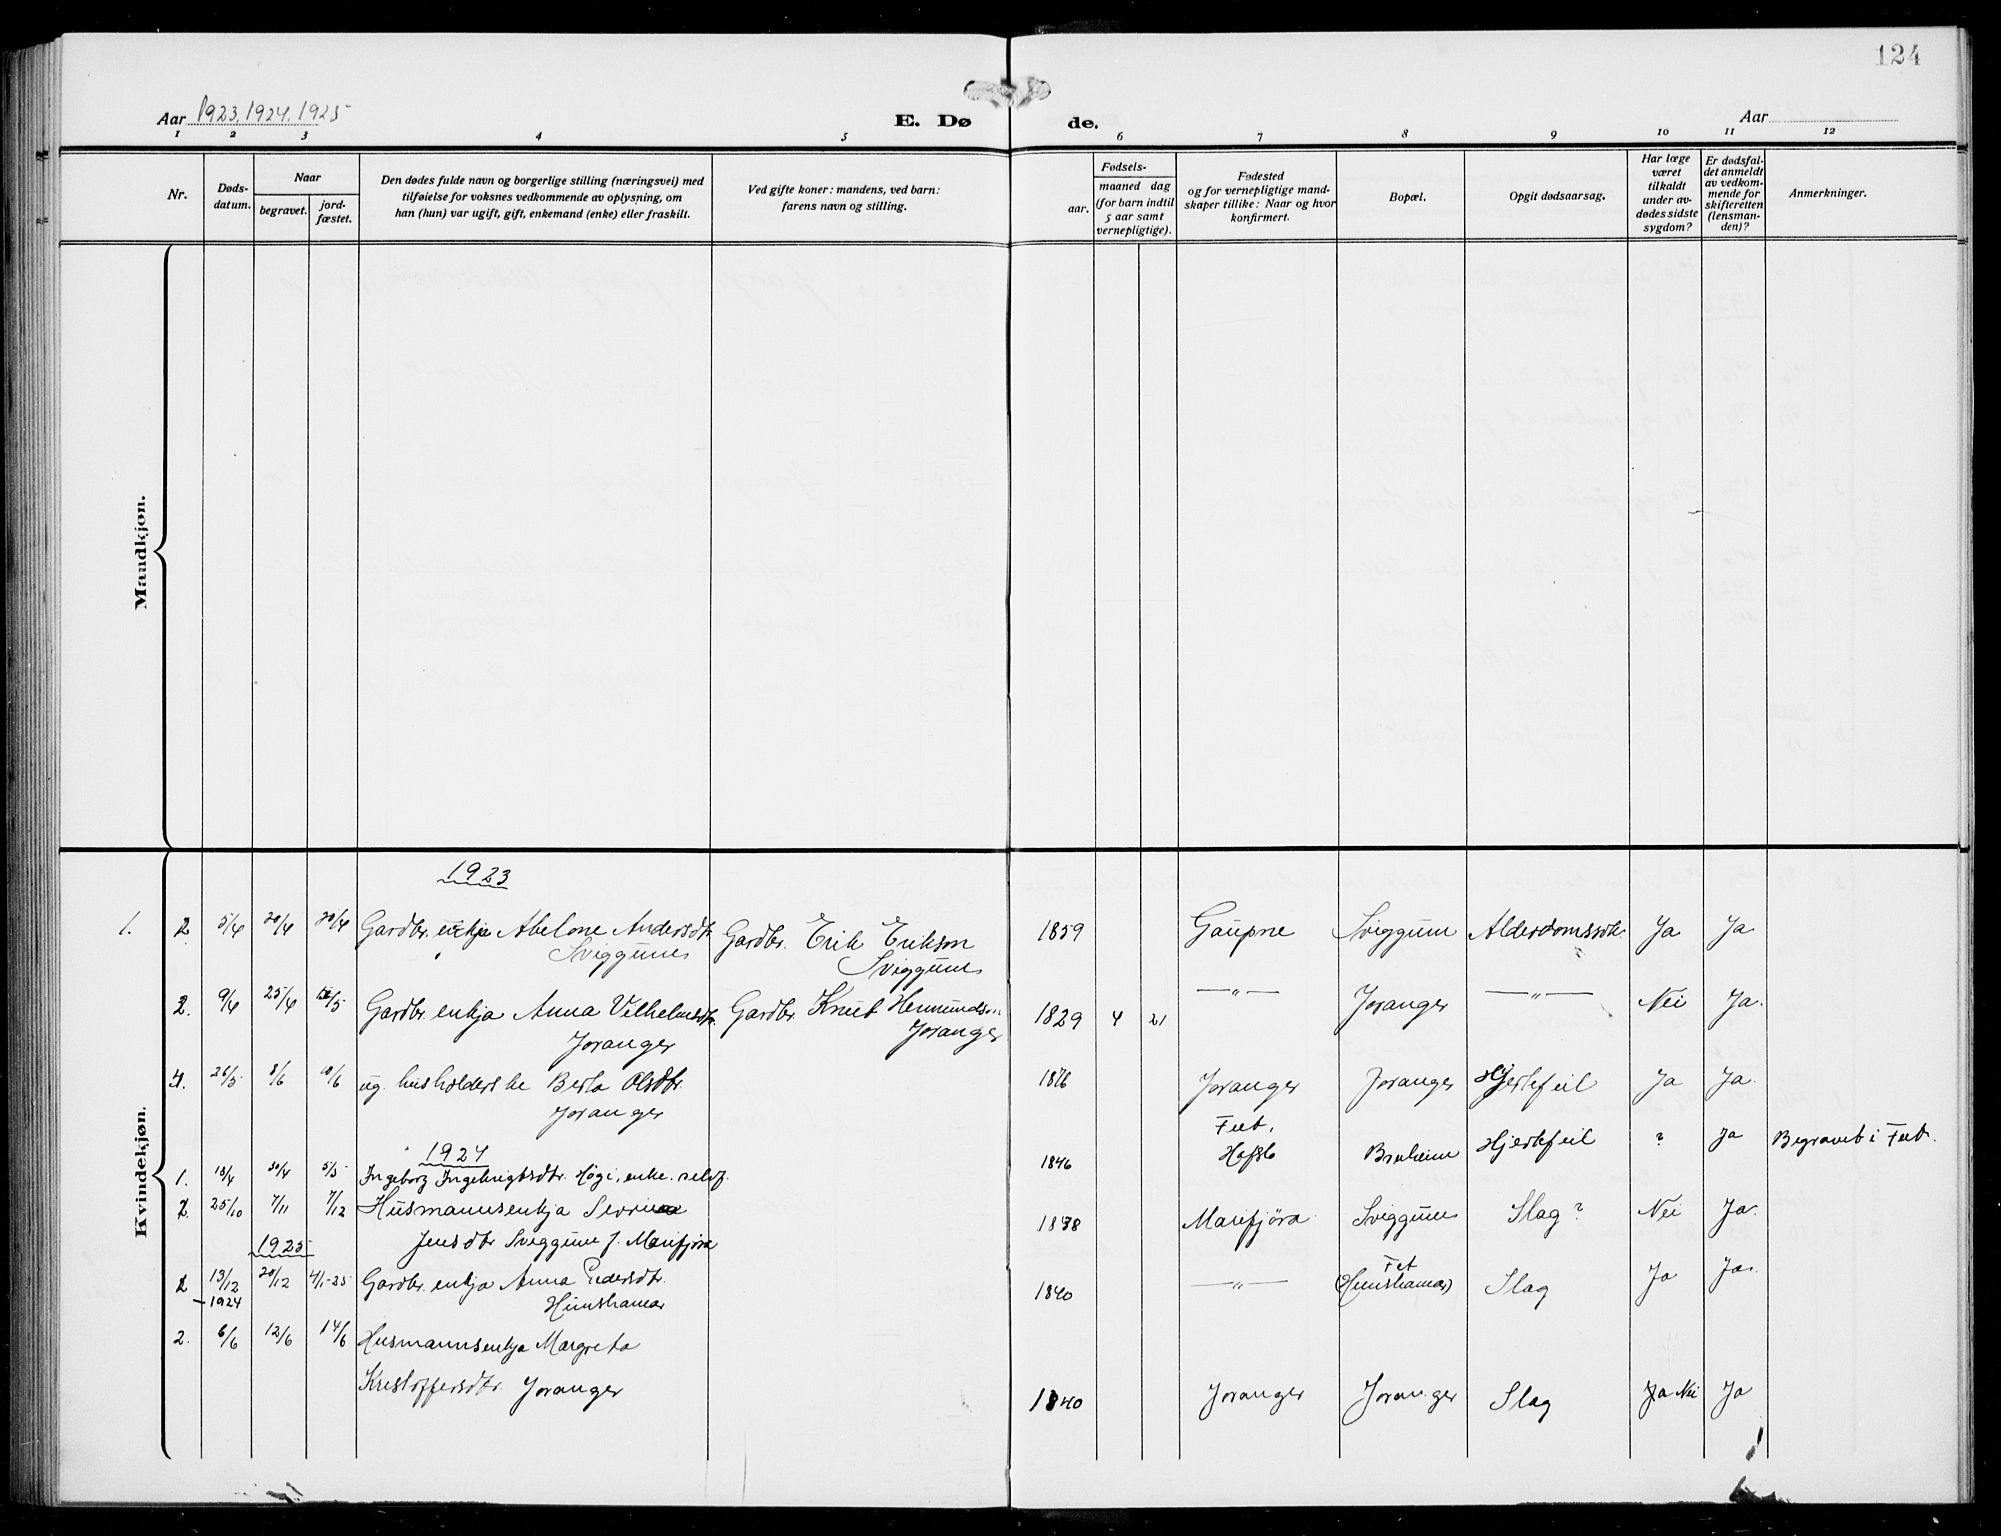 124
Aar 1923, 1924, 1925
E. Dø de.
Aar
1 2 3 4 5 6 7 8 9 10 11 12
Nr.
Døds-
datum.
Naar
begravet.
jord-
fæstet.
Den dødes fulde navn og borgerlige stilling (næringsvei) med
tilføielse for voksnes vedkommende av oplysning, om
han (hun) var ugift, gift, enkemand (enke) eller fraskilt.
Ved gifte koner: mandens, ved barn:
farens navn og stilling.
Fødsels-
aar.
maaned dag
(for barn indtil
5 aar samt
vernepligtige).
Fødested
og for vernepligtige mand-
skaper tillike: Naar og hvor
konfirmert.
Bopæl.
Opgit dødsaarsag.
Har læge
været
tilkaldt
under av-
dødes sidste
sygdom?
Er dødsfal-
det anmeldt
av vedkom-
mende for
skifteretten
(lensman-
den)?
Anmerkninger.
Mandkjøn.
Kvindekjøn.
1923
1. 2 5/4 20/4 20/4 Gardbr. enkje Abelone Andersdtr. Gardbr. Erik Erikson 1859 Gaupne Sviggum Alderdomssvk. Ja Ja
Sviggum Sviggum
2. 9/4 25/4 /5 Gardbr. enkja Anna Vilhelmsdtr. Gardbr. Knut Hermundson 1829 4 21 —„— Joranger —„— Nei Ja.
Joranger Joranger
4. 26/5 8/6 10/6 ug. husholderske Berta Olsdtr. 1876 Joranger Joranger Hjertefeil Ja Ja.
Joranger
1924
1. 18/4 30/4 5/5 Ingeborg Ingebrigtsdtr. Høgi, enke. 1846 Feet, Hafslo Bruheim Hjertefeil ? Ja Begravet i Feet.
2. 25/10 7/11 7/12 Husmannsenkja Serina 1838 Marifjøra Sviggum Slag? Nei Ja.
Jensdtr Sviggum f. Marifjøra
1925
1 13/12 1924 20/12 4/1-25 Gardbr. enkja Anna Pedersdtr. 1840 —„— Fet (Heimshamar) Slag Ja Ja.
Heimshamar
2. 6/6 12/6 14/6 Husmannsenkja Margreta
Kristoffersdtr. Joranger 1840 Joranger Joranger Slag Ja Nei Ja